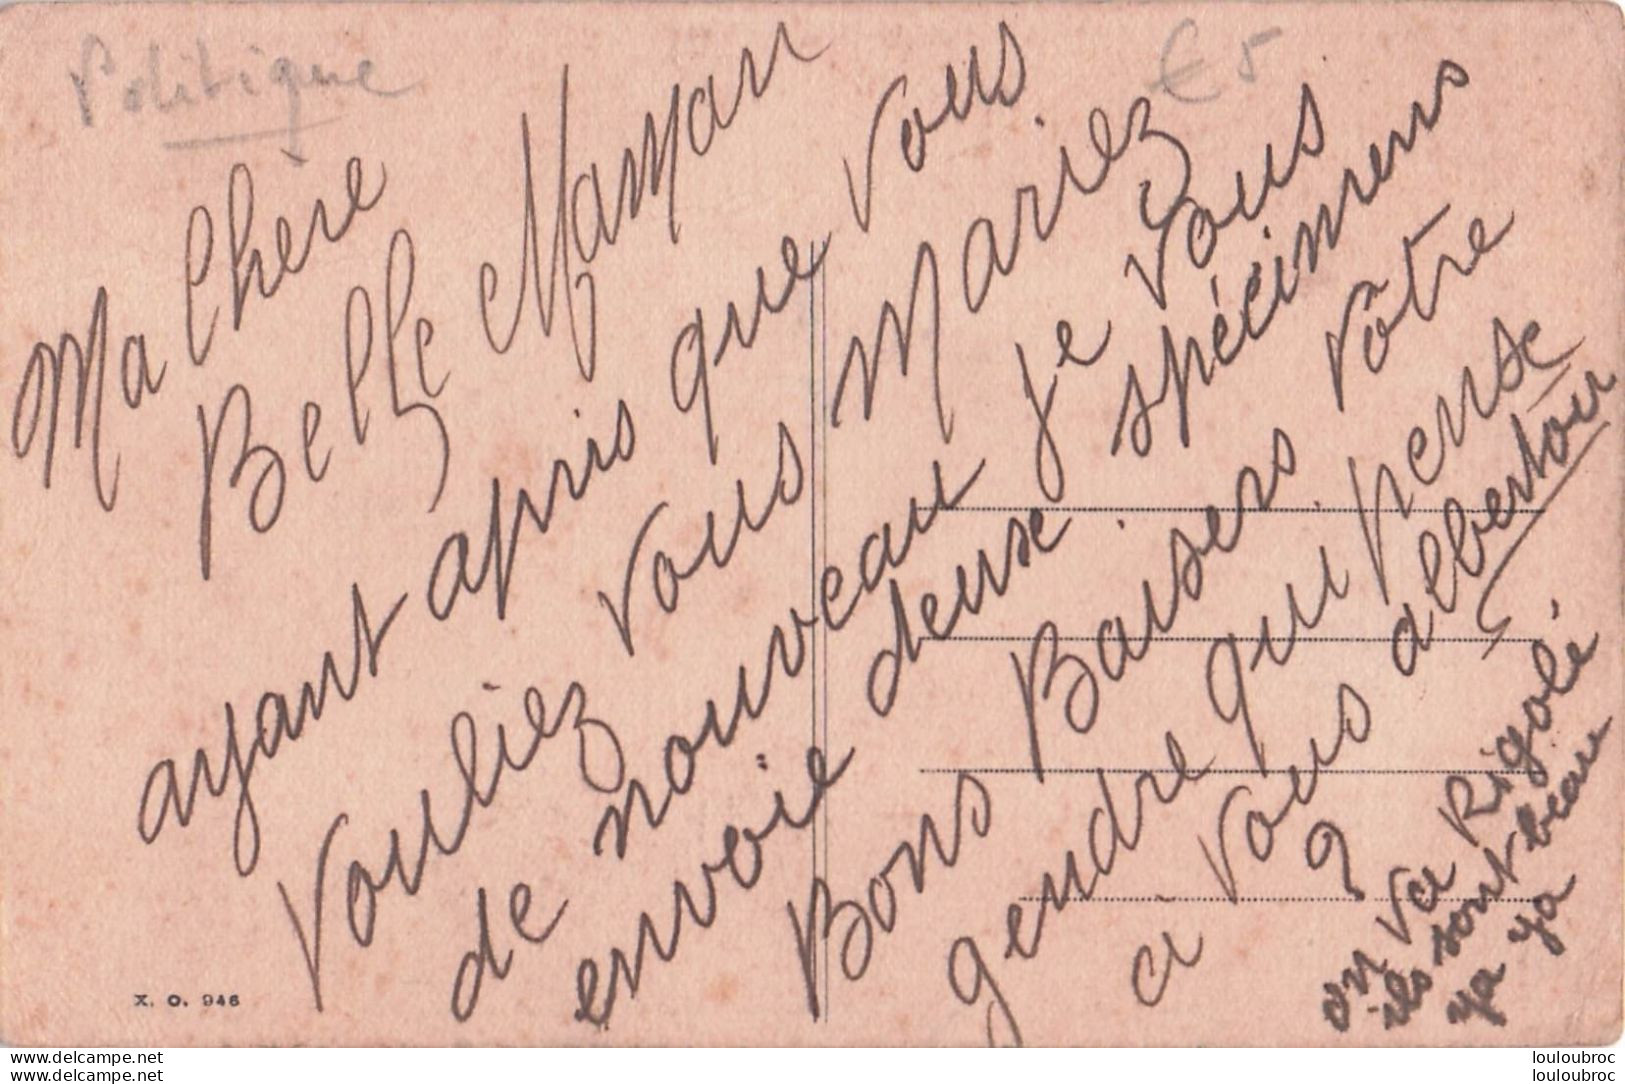 Politique
€5
Ma Chère
Belle Maman
ayant apris que vous
vouliez vous Mariez
de nouveau je vous
envoie deuse spécimens
Bons Baisers vôtre
gendre qui pense
a vous albertou
?
on va Rigolé
ils sont beau
ya ya
X. O. 946
www.delcampe.net
www.delcampe.net
louloubroc
louloubroc